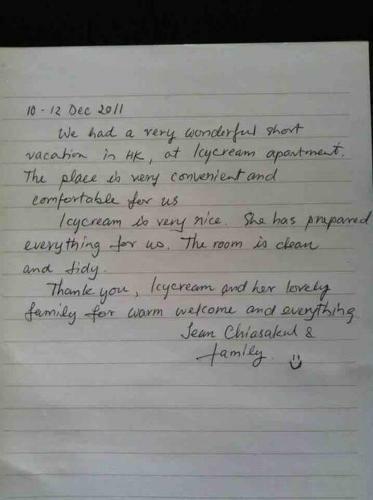 10-12 Dec 2011
We had a very wonderful short
vacation in HK, at Icycream apartment.
The place is very convenient and
comfortable for us
Icycream is very nice. She has prepared
everything for us. The room is clean
and tidy.
Thank you, Icycream and her lovely
family for warm welcome and everything
Jean Chiasakul &
family.